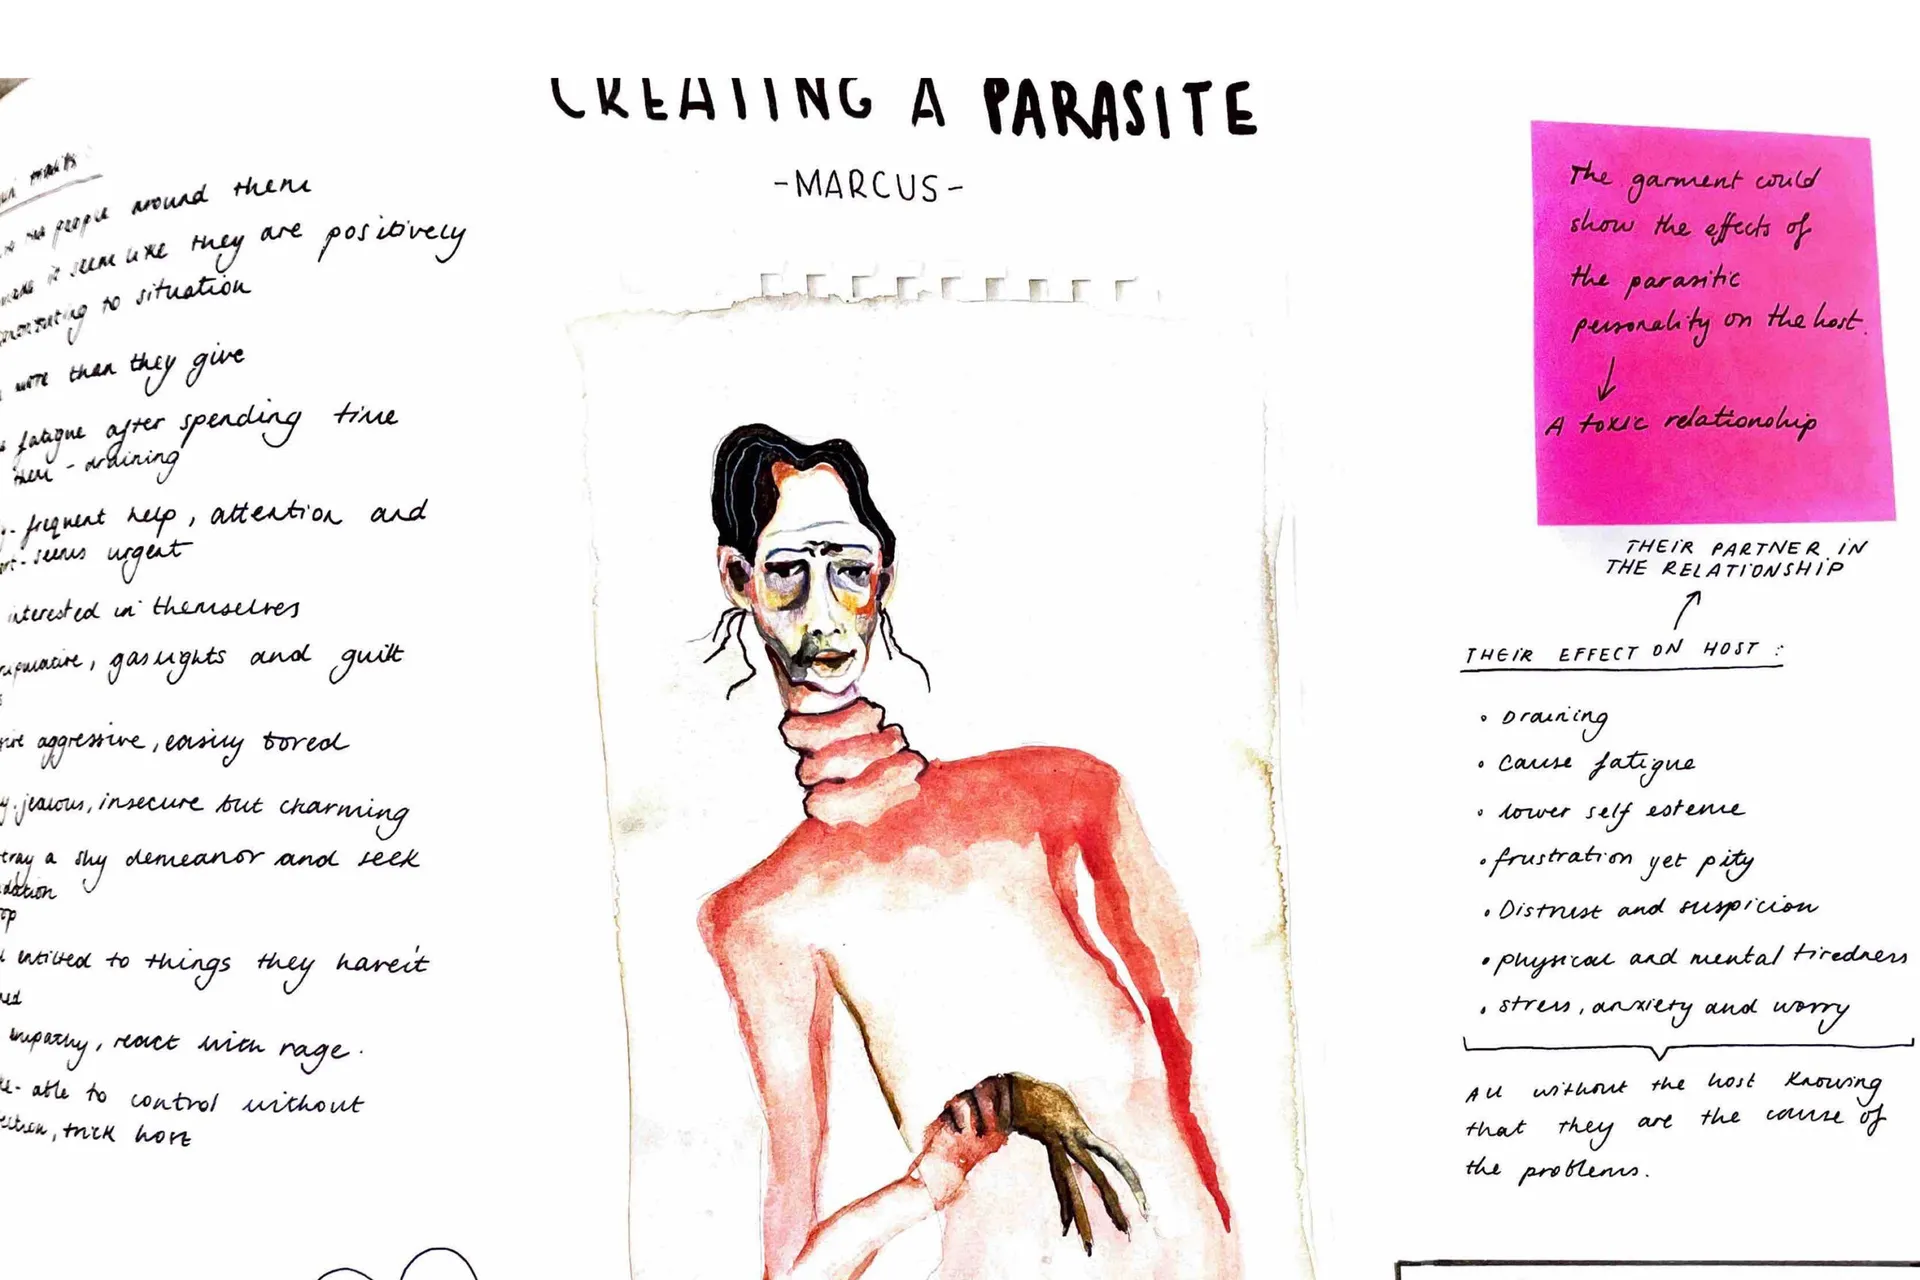 CREATING A PARASITE
-MARCUS-
traits
people around them
it seem like they are positively
to situation
more than they give
fatigue after spending time
them - draining
frequent help, attention and
seems urgent
interested in themselves
, gaslights and guilt
aggressive, easily bored
jealous, insecure but charming
a shy demeanor and seek
to things they haven't
empathy, react with rage.
able to control without
, trick host
The garment could
show the effects of
the parasitic
personality on the host.
A toxic relationship
THEIR PARTNER IN
THE RELATIONSHIP
THEIR EFFECT ON HOST :
• Draining
• cause fatigue
• lower self esteme
• frustration yet pity
• Distrust and suspicion
• physical and mental tiredness
• stress, anxiety and worry
All without the host knowing
that they are the cause of
the problems.